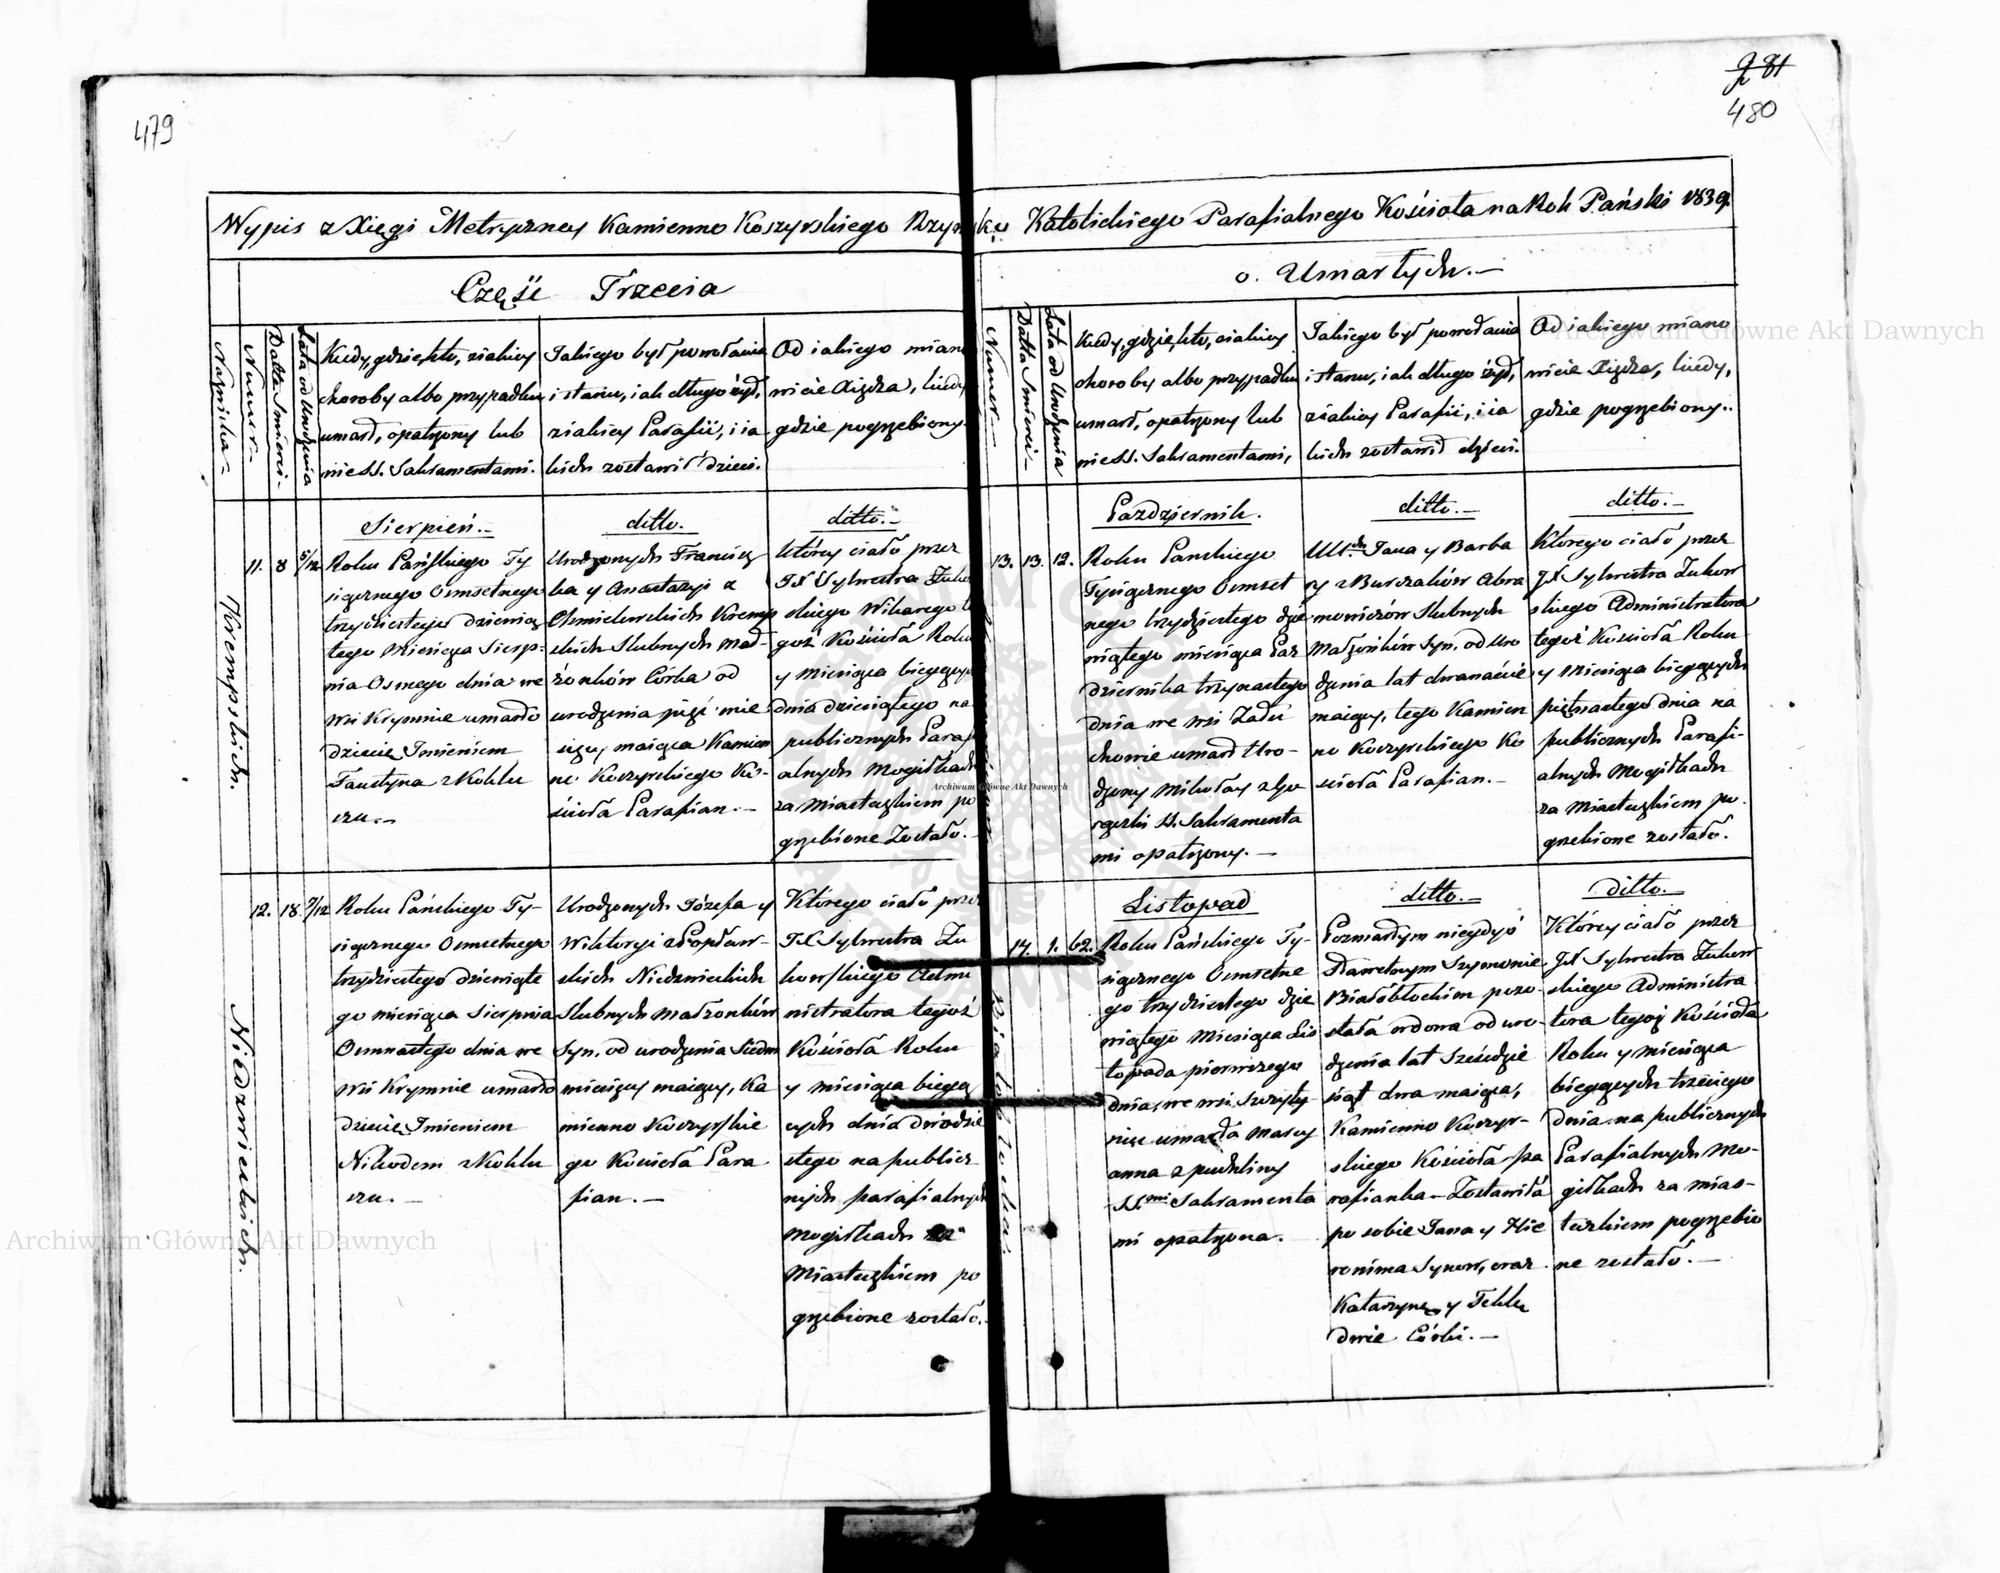 479
g 81
480
Wypis z Xięgi Metryczney Kamienno Koszyrskiego Rzymsko Katolickiego Parafialnego Kościoła na Rok Pański 1839.
Część Trzecia
o. Umarłych.—
Nazwiska
Numer
Datta Smierci
Lata od Urodzenia
Kiedy, gdzie, kto, z iakiey
choroby albo przypadku
umarł, opatrzony lub
nie SS. Sakramentami.
Jakiego był powołania
i stanu, iak długo żył,
z iakiey Parafii, i ia
kich zostawił dzieci.
Od iakiego miano
wicie Xiędza, kiedy
gdzie pogrzebiony.
Sierpień.—
ditto.
ditto.—
Krempskich.
11. 8 5/12
Roku Pańskiego Ty
siącznego Osmsetnego
trzydziestego dziewią
tego Miesiąca Sierp=
nia Osmego dnia we
wsi Krymnie umarło
dziecie Imieniem
Faustyna z Koklu
szu.—
Urodzonych Francisz
ka y Anastazyi z
Chmielewskich Kremp
skich Slubnych Mał-
żonków Córka od
urodzenia pięć mie
sięcy maiąca Kamien
no Koszyrskiego Ko-
ścioła Parafian.—
Którey ciało przez
JX Sylwestra Żukow
skiego Wikarego te
goż Kościoła Roku
y Miesiąca bieżących
dnia dziesiątego na
publicznych Parafi
alnych Mogiłkach
za Miasteczkiem po
grzebione Zostało.—
Niedzwieckich.
12. 18. 7/12
Roku Pańskiego Ty-
siącznego Osmsetnego
trzydziestego dziewiąte
go miesiąca Sierpnia
Osmnastego dnia we
wsi Krymnie umarło
dziecie Imieniem
Nikodem z Koklu
szu.—
Urodzonych Józefa y
Wiktoryi z Popław-
skich Niedzwieckich
Slubnych małżonków
Syn, od urodzenia Siedm
miesięcy maiący, Ka
mienno Koszyrskie
go Kościoła Para
fian.—
Którego ciało przez
JX Sylwestra Żu
kowskiego Admi
nistratora tegoż
Kościoła Roku
y miesiąca bieżą
cych dnia dwódzie
stego na publicz
nych parafialnych
mogiłkach za
Miasteczkiem po
grzebione zostało.
Numer
Datta Smierci
Lata od Urodzenia
Kiedy, gdzie, kto, z iakiey
choroby albo przypadku
umarł, opatrzony lub
nie SS. Sakramentami,
Jakiego był powołania
i stanu, iak długo żył,
z iakiey Parafii, i ia
kich zostawił dzieci.
Od iakiego miano
wicie Xiędza, kiedy,
gdzie pogrzebiony..
Pazdziernik.
ditto.—
ditto.—
13. 13. 12.
Roku Panskiego
Tysiącznego Osmset
nego trzydziestego dzie
wiątego miesiąca Paz
dziernika trzynastego
dnia we wsi Zadu
chowie umarł Uro-
dzony Mikołay z go
rączki SS. Sakramenta
mi opatrzony.—
Jana y Barba
ry z Burzaków Abra
mowiczów Slubnych
Małżonków Syn, od Uro
dzenia lat dwanaście
maiący, tego Kamien
no Koszyrskiego Ko
scioła Parafian.—
Którego ciało przez
JX Sylwestra Żukow
skiego Administratora
tegoż Kościoła Roku
y Miesiąca bieżących
piętnastego dnia na
publicznych Parafi-
alnych Mogiłkach
za Miasteczkiem po-
grzebione zostało.
Listopad
ditto.—
ditto.—
14. 1. 62.
Roku Pańskiego Ty-
siącznego Osmsetne
go trzydziestego dzie
wiątego Miesiąca Lis
topada pierwszego
dnia, we wsi
umarła Mary
anna z puchliny
SSmi Sakramenta
mi opatrzona.
Pozmarłym niegdyś
Sławetnym Szymonie
Białobłockim pozo-
stała wdowa od uro
dzenia lat Sześćdzie
siąt dwa maiąca,
Kamienno Koszyr-
skiego Kościoła Pa
rafianka — Zostawiła
po sobie Jana y Hie
ronima Synow, oraz
Katarzynę y Teklę
dwie Córki.—
Którey ciało przez
JX Sylwestra Żukow
skiego Administra
tora tegoż Kościoła
Roku y miesiąca
bieżących trzeciego
dnia na publicznych
Parafialnych Mo-
giłkach za mias-
teczkiem pogrzebio
ne zostało.—
Archiwum Główne Akt Dawnych
Archiwum Główne Akt Dawnych
Archiwum Główne Akt Dawnych